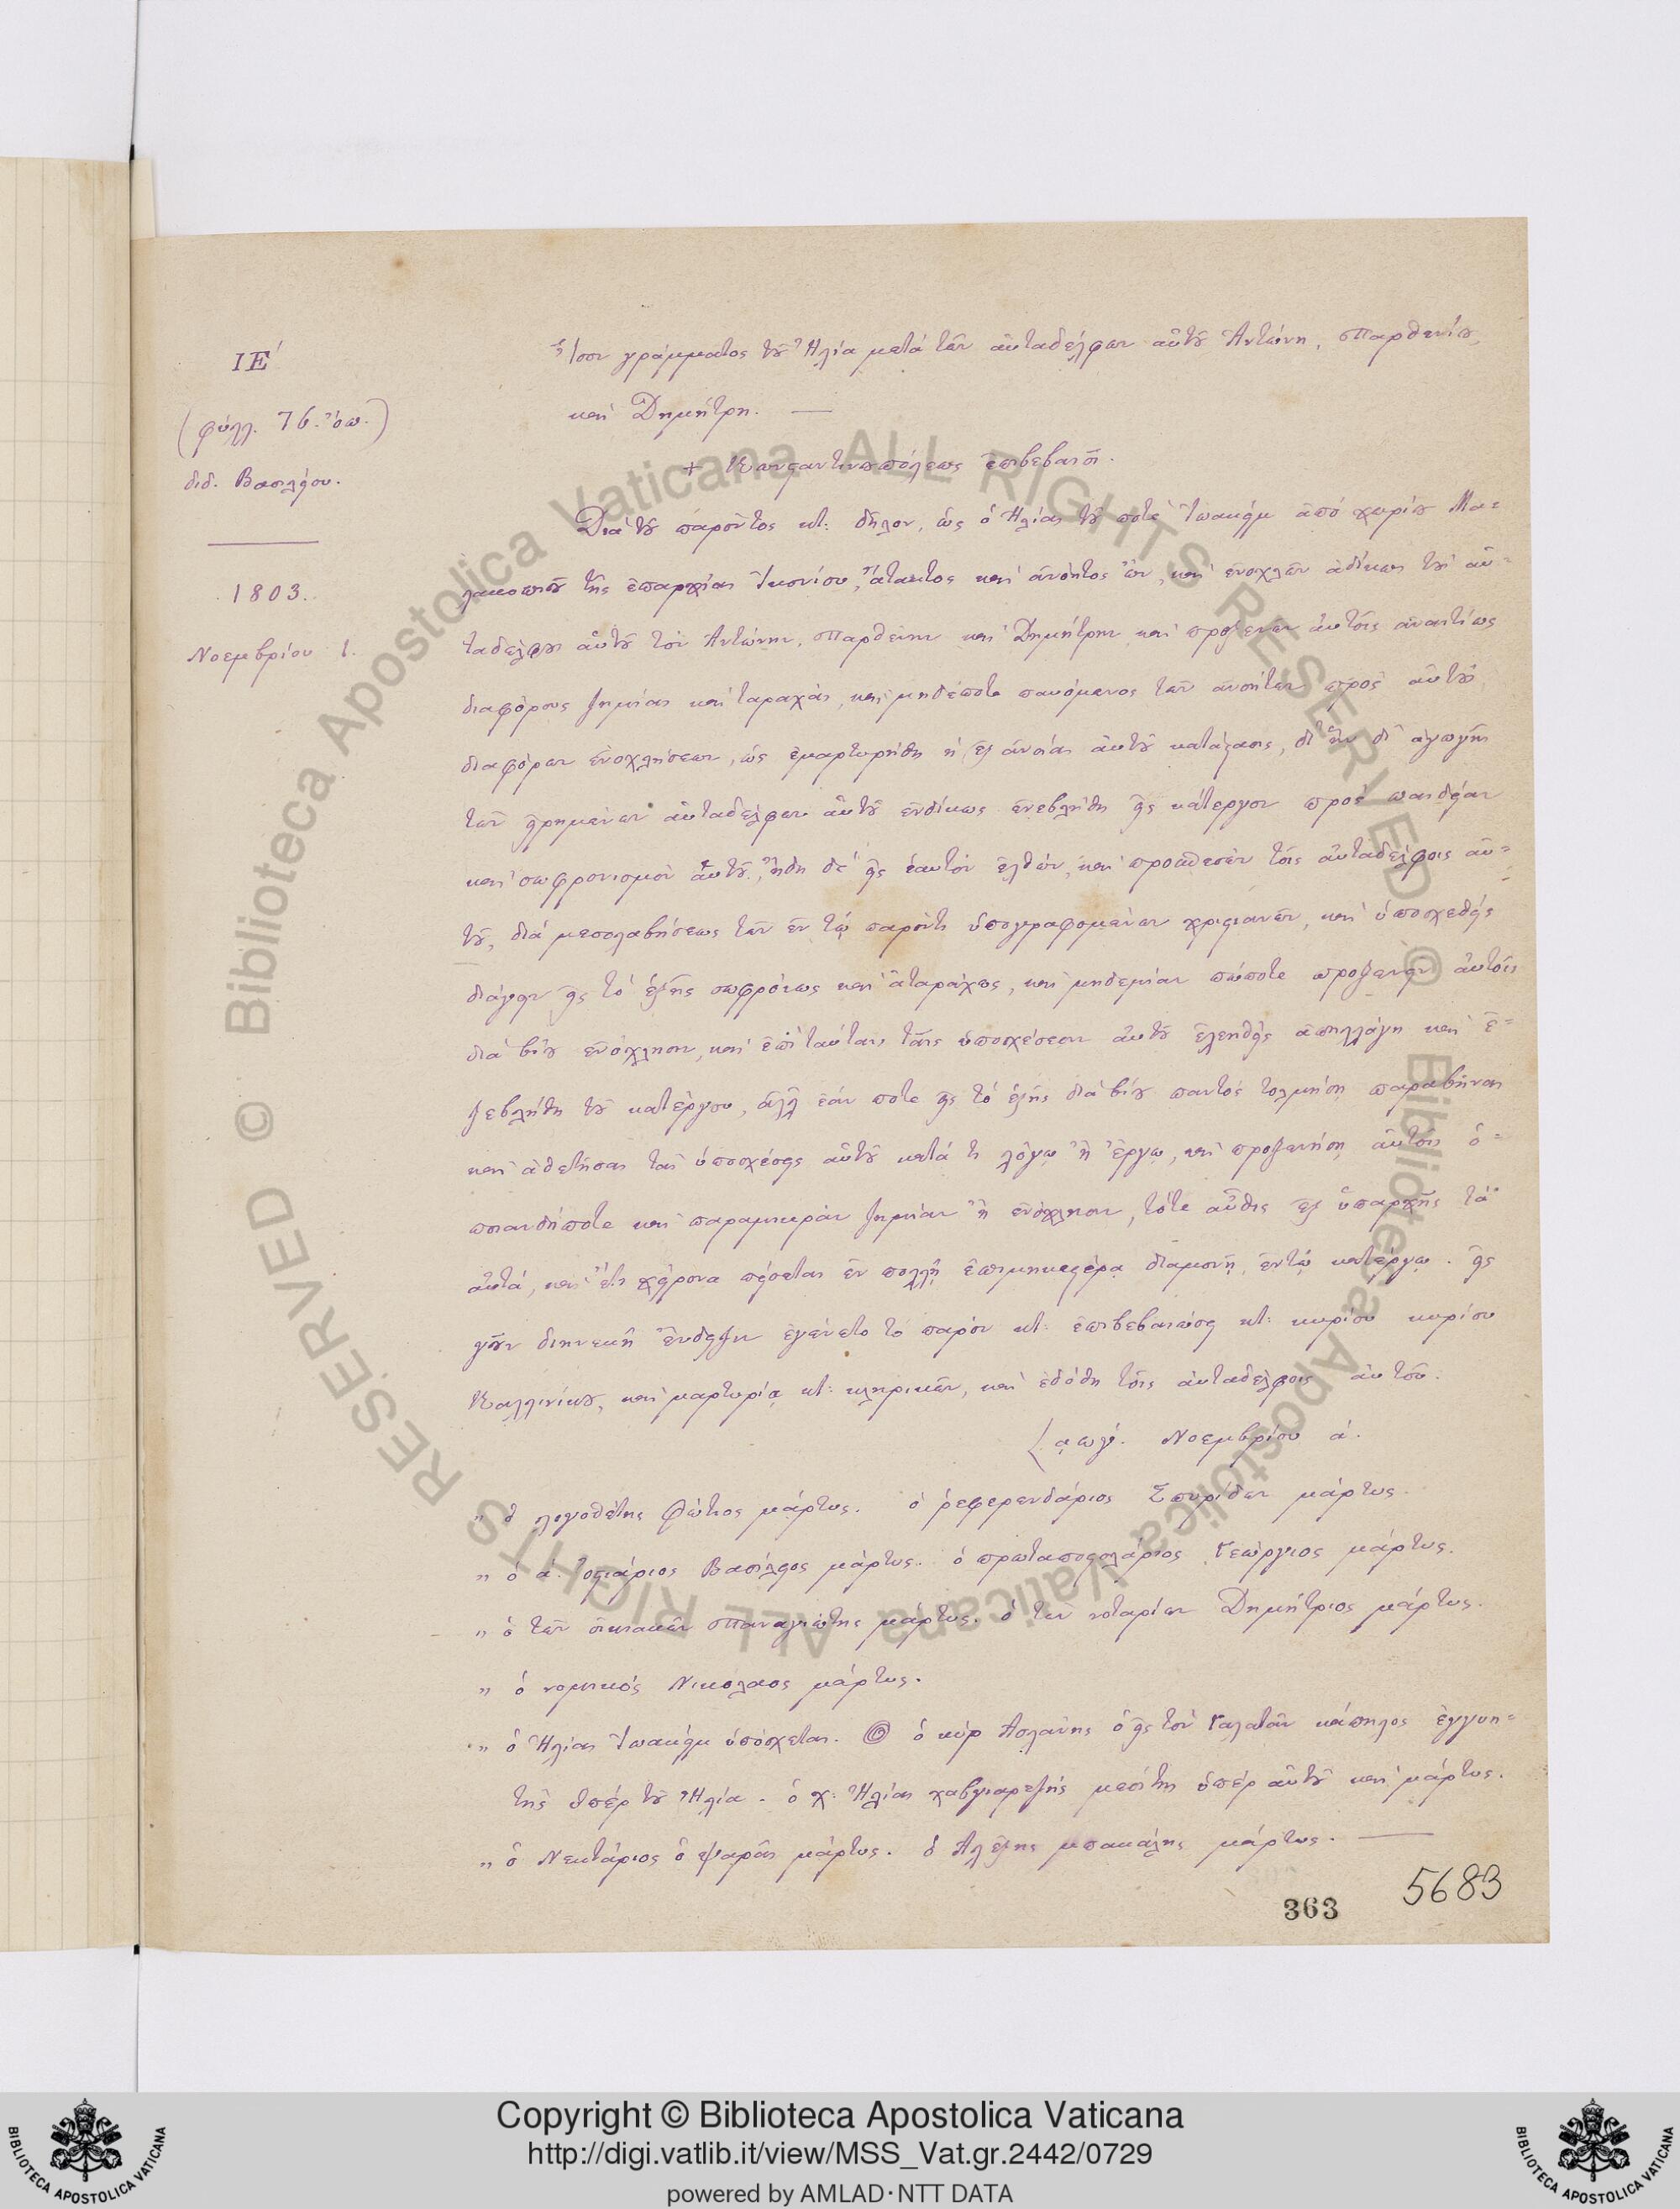 ΙΕ΄
(φύλλ. 76. ὄπ.)
διδ. Βασιλείου.
1803.
Νοεμβρίου 1.
Ἴσον γράμματος τοῦ Ἠλία μετὰ τῶν αὐταδέλφων αὐτοῦ Ἀντώνη, Παρθενίου,
καὶ Δημήτρη. —
+ Κωνσταντινουπόλεως ἐπιβεβαιοῖ.
Διὰ τοῦ παρόντος κτ: δῆλον, ὡς ὁ Ἠλίας τοῦ ποτὲ Ἰωακεὶμ ἀπὸ χωρίου Μα=
λακοπιοῦ τῆς ἐπαρχίας Ἰκονίου, ἄτακτος καὶ ἀνόητος ὤν, καὶ ἐνοχλῶν ἀδίκως τοὺς αὐ=
ταδέλφους αὐτοῦ τὸν Ἀντώνην, Παρθένιον καὶ Δημήτρην καὶ προξενῶν αὐτοῖς ἀναιτίως
διαφόρους ζημίας καὶ ταραχάς, καὶ μηδέποτε παυόμενος τῶν ἀνοήτων πρὸς αὐτοὺς
διαφόρων ἐνοχλήσεων, ὡς ἐμαρτυρήθη ἡ ἐξ ἀνοίας αὐτοῦ κατάστασις, δι' ἣν δι' ἀγωγῆς
τῶν εἰρημένων αὐταδέλφων αὐτοῦ ἐνδίκως ἐνεβλήθη εἰς κάτεργον πρὸς παιδείαν
καὶ σωφρονισμὸν αὐτοῦ, ἤδη δὲ εἰς ἑαυτὸν ἐλθών, καὶ προσπεσὼν τοῖς αὐταδέλφοις αὐ=
τοῦ, διὰ μεσολαβήσεως τῶν ἐν τῷ παρόντι ὑπογραφομένων χριστιανῶν, καὶ ὑποσχεθεὶς
διάγειν εἰς τὸ ἑξῆς σωφρόνως καὶ ἀταράχως, καὶ μηδεμίαν πώποτε προξενεῖν αὐτοῖς
διὰ βίου ἐνόχλησιν, καὶ ἐπὶ ταύταις ταῖς ὑποσχέσεσιν αὐτοῦ ἐλεηθεὶς ἀπηλλάγη καὶ ἐ=
ξεβλήθη τοῦ κατέργου, ἀλλ' ἐάν ποτε εἰς τὸ ἑξῆς διὰ βίου παντὸς τολμήσῃ παραβῆναι
καὶ ἀθετῆσαι τὰς ὑποσχέσεις αὐτοῦ κατά τι λόγῳ ἢ ἔργῳ, καὶ προξενήσῃ αὐτοῖς ὁ=
ποιανδήποτε καὶ παραμικρὰν ζημίαν ἢ ἐνόχλησιν, τότε αὖθις ἐξ ὑπαρχῆς τὰ
αὐτά, καὶ ἔτι χείρονα πείσεται ἐν πολλῇ ἐπιμηκεστέρᾳ διαμονῇ ἐν τῷ κατέργῳ. εἰς
γοῦν διηνεκῆ ἔνδειξιν ἐγένετο τὸ παρὸν κτ: ἐπιβεβαιώσει κτ: κυρίου κυρίου
Καλλινίκου, καὶ μαρτυρίᾳ κτ: κληρικῶν, καὶ ἐδόθη τοῖς αὐταδέλφοις αὐτοῦ.
͵αωγ΄. Νοεμβρίου ά.
" ὁ λογοθέτης Φώτιος μάρτυς. ὁ ῥεφερενδάριος Σπυρίδων μάρτυς.
" ὁ ά. ὀστιάριος Βασίλειος μάρτυς. ὁ πρωταποστολάριος Γεώργιος μάρτυς.
" ὁ τῶν οἰκιακῶν Παναγιώτης μάρτυς. ὁ τῶν νοταρίων Δημήτριος μάρτυς.
" ὁ νομικὸς Νικόλαος μάρτυς.
" ὁ Ἠλίας Ἰωακεὶμ ὑπόσχεται. ὁ κὺρ Ἀσλάνης ὁ εἰς τὸν Γαλατᾶν κάπηλος ἐγγυη=
τὴς ὑπὲρ τοῦ Ἠλία. ὁ χ: Ἠλίας χαβγιαρεζῆς μεσίτης ὑπὲρ αὐτοῦ καὶ μάρτυς.
" ὁ Νεκτάριος ὁ ψαρᾶς μάρτυς. ὁ Ἀλέξης μπακάλης μάρτυς. —
363
5683
© Biblioteca Apostolica Vaticana ALL RIGHTS RESERVED
© Biblioteca Apostolica Vaticana ALL RIGHTS RESERVED
Copyright © Biblioteca Apostolica Vaticana
http://digi.vatlib.it/view/MSS_Vat.gr.2442/0729
powered by AMLAD·NTT DATA
BIBLIOTECA APOSTOLICA VATICANA
BIBLIOTECA APOSTOLICA VATICANA